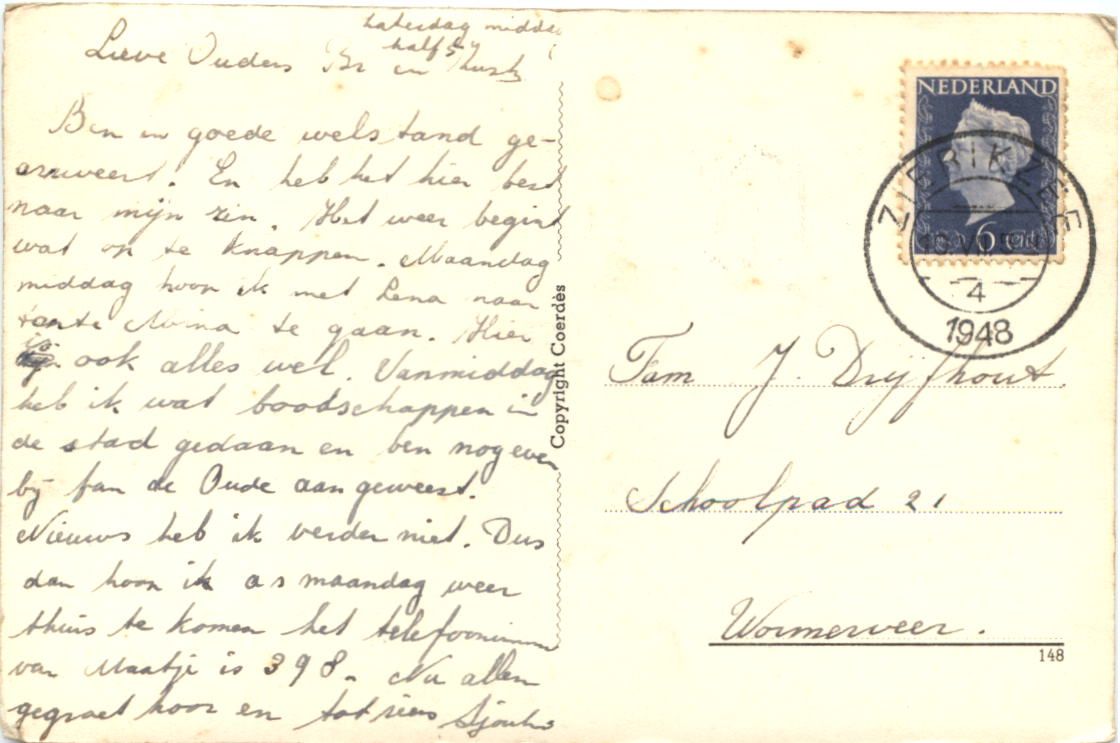 Zaterdag middag
half 5
Lieve Ouders Br en Zusts
Ben in goede welstand ge-
arriveert. En heb het hier best
naar mijn zin. Het weer begint
wat op te knappen. Maandag
middag hoop ik met Lena naar
tante Mina te gaan. Hier
is ook alles wel. Vanmiddag
heb ik wat boodschappen in
de stad gedaan en ben nog even
bij fam de Oude aangeweest.
Nieuws heb ik verder niet. Dus
dan hoop ik as maandag weer
thuis te komen het telefoonnum
van Maatje is 398. Nu allen
gegroet hoor en tot ziens
Copyright Coerdès
NEDERLAND
6 cent
ZIERIKZEE
4
1948
Fam J. Dryfhout.
Schoolpad 21
Wormerveer.
148